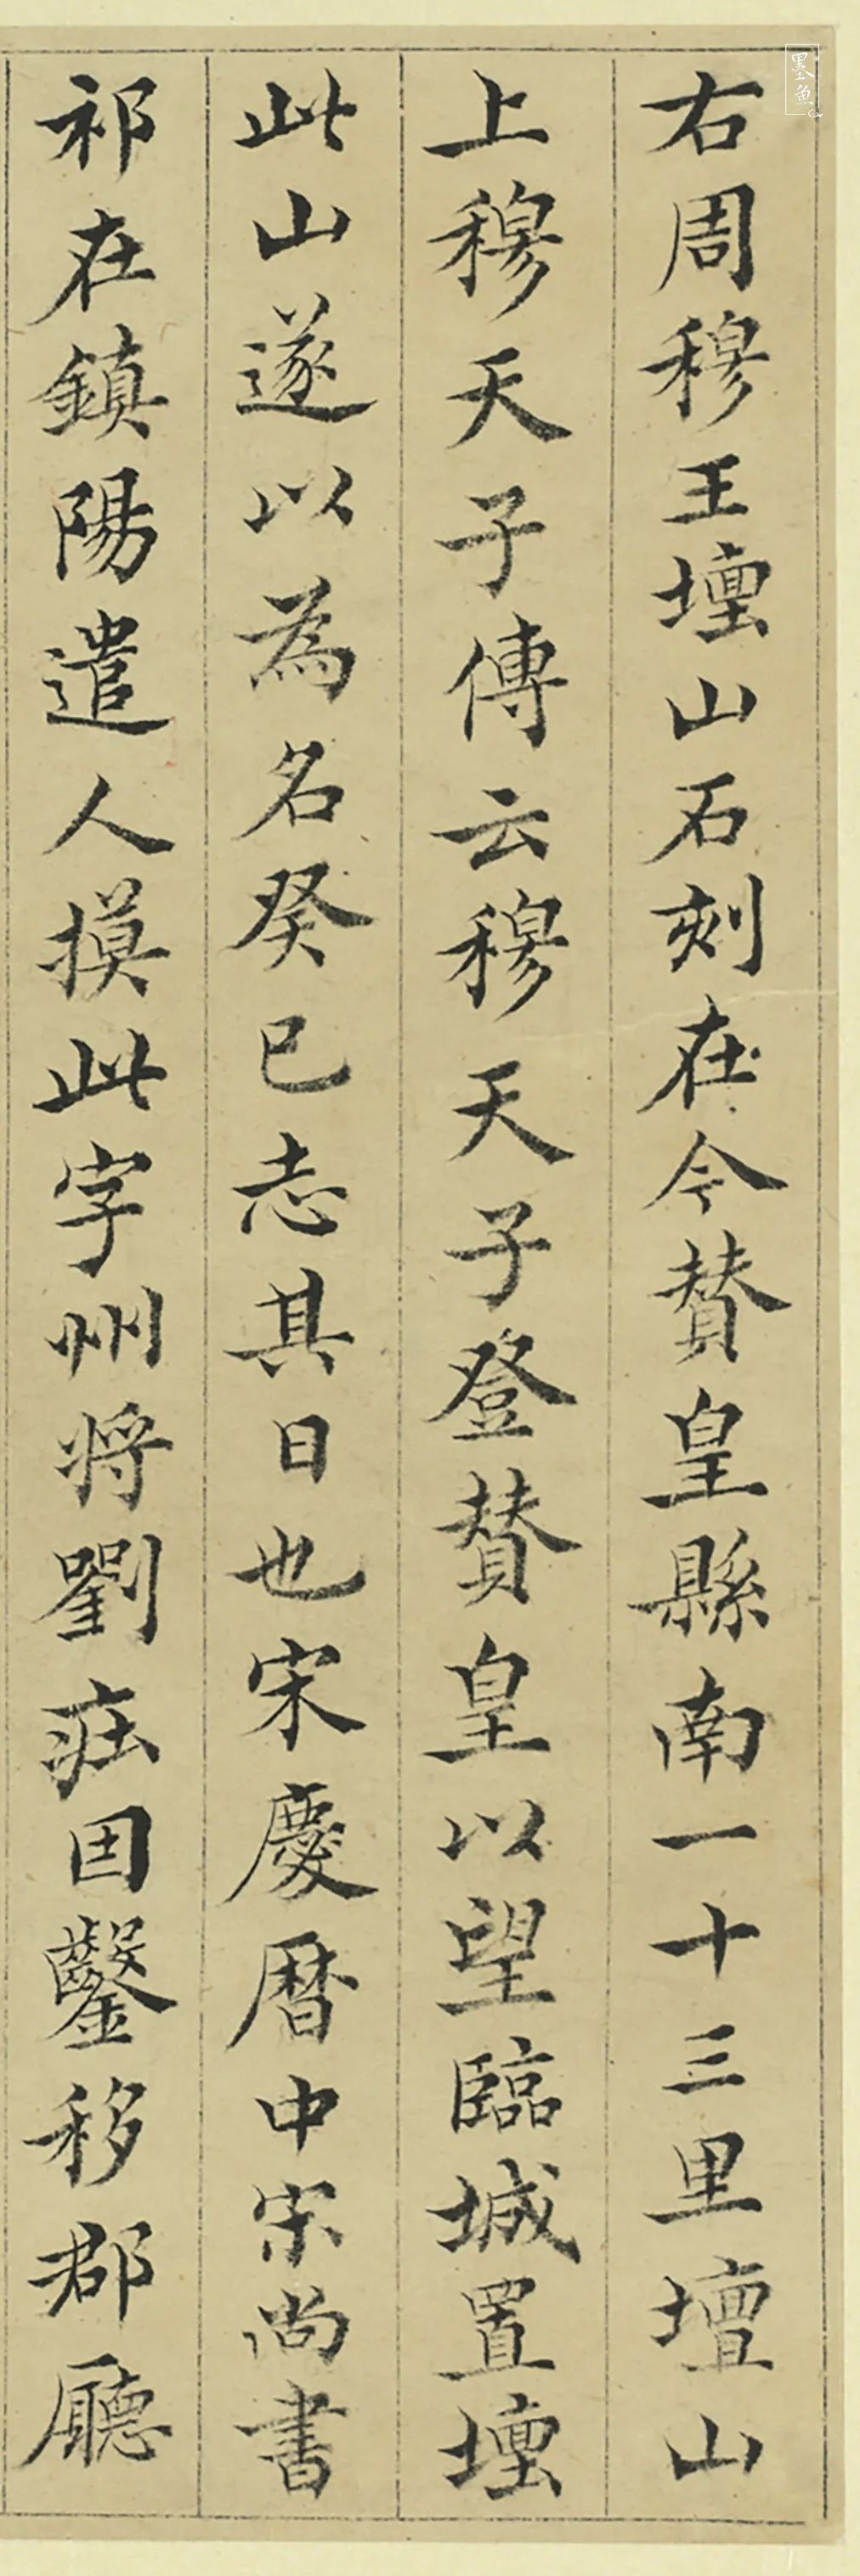 右周穆王壇山石刻在今賛皇縣南一十三里壇山
上穆天子傳云穆天子登賛皇以望臨城置壇
此山遂以為名癸巳志其日也宋慶曆中宋尚書
祁在鎮陽遣人摸此字州将劉莊因鑿移郡廳
墨魚